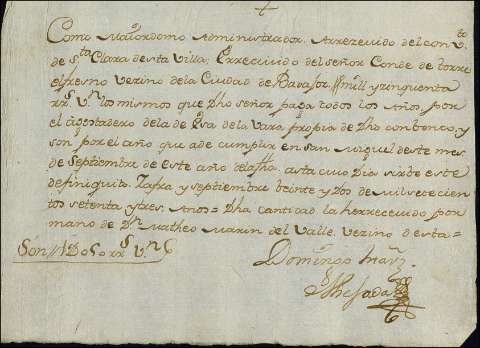 Como Maiordomo Administrador Arrezevido del conv.to
de S.ta Clara desta Villa; Errecivido del señor Conde de torre
elfresno Vezino dela Ciudad de Badajoz, mill y zinquenta
rr.s V.n los mismos que Dho señor paga todos los Años, por
el agostadero dela de esa dela Vara propia de Dho conbento, y
son por el año que ade cumplir en san Miguel deste mes
de Septiembre de este año dela fha, asta cuio Dia sirbe este
definiquito. Zafra y septiembre beinte y Dos de mil setecien
tos setenta y tres Años = Dha cantidad la herrecevido por
mano de D.n Matheo Marin del Valle Vezino desta =
Son rr.s V.n
Domingo
Quesada